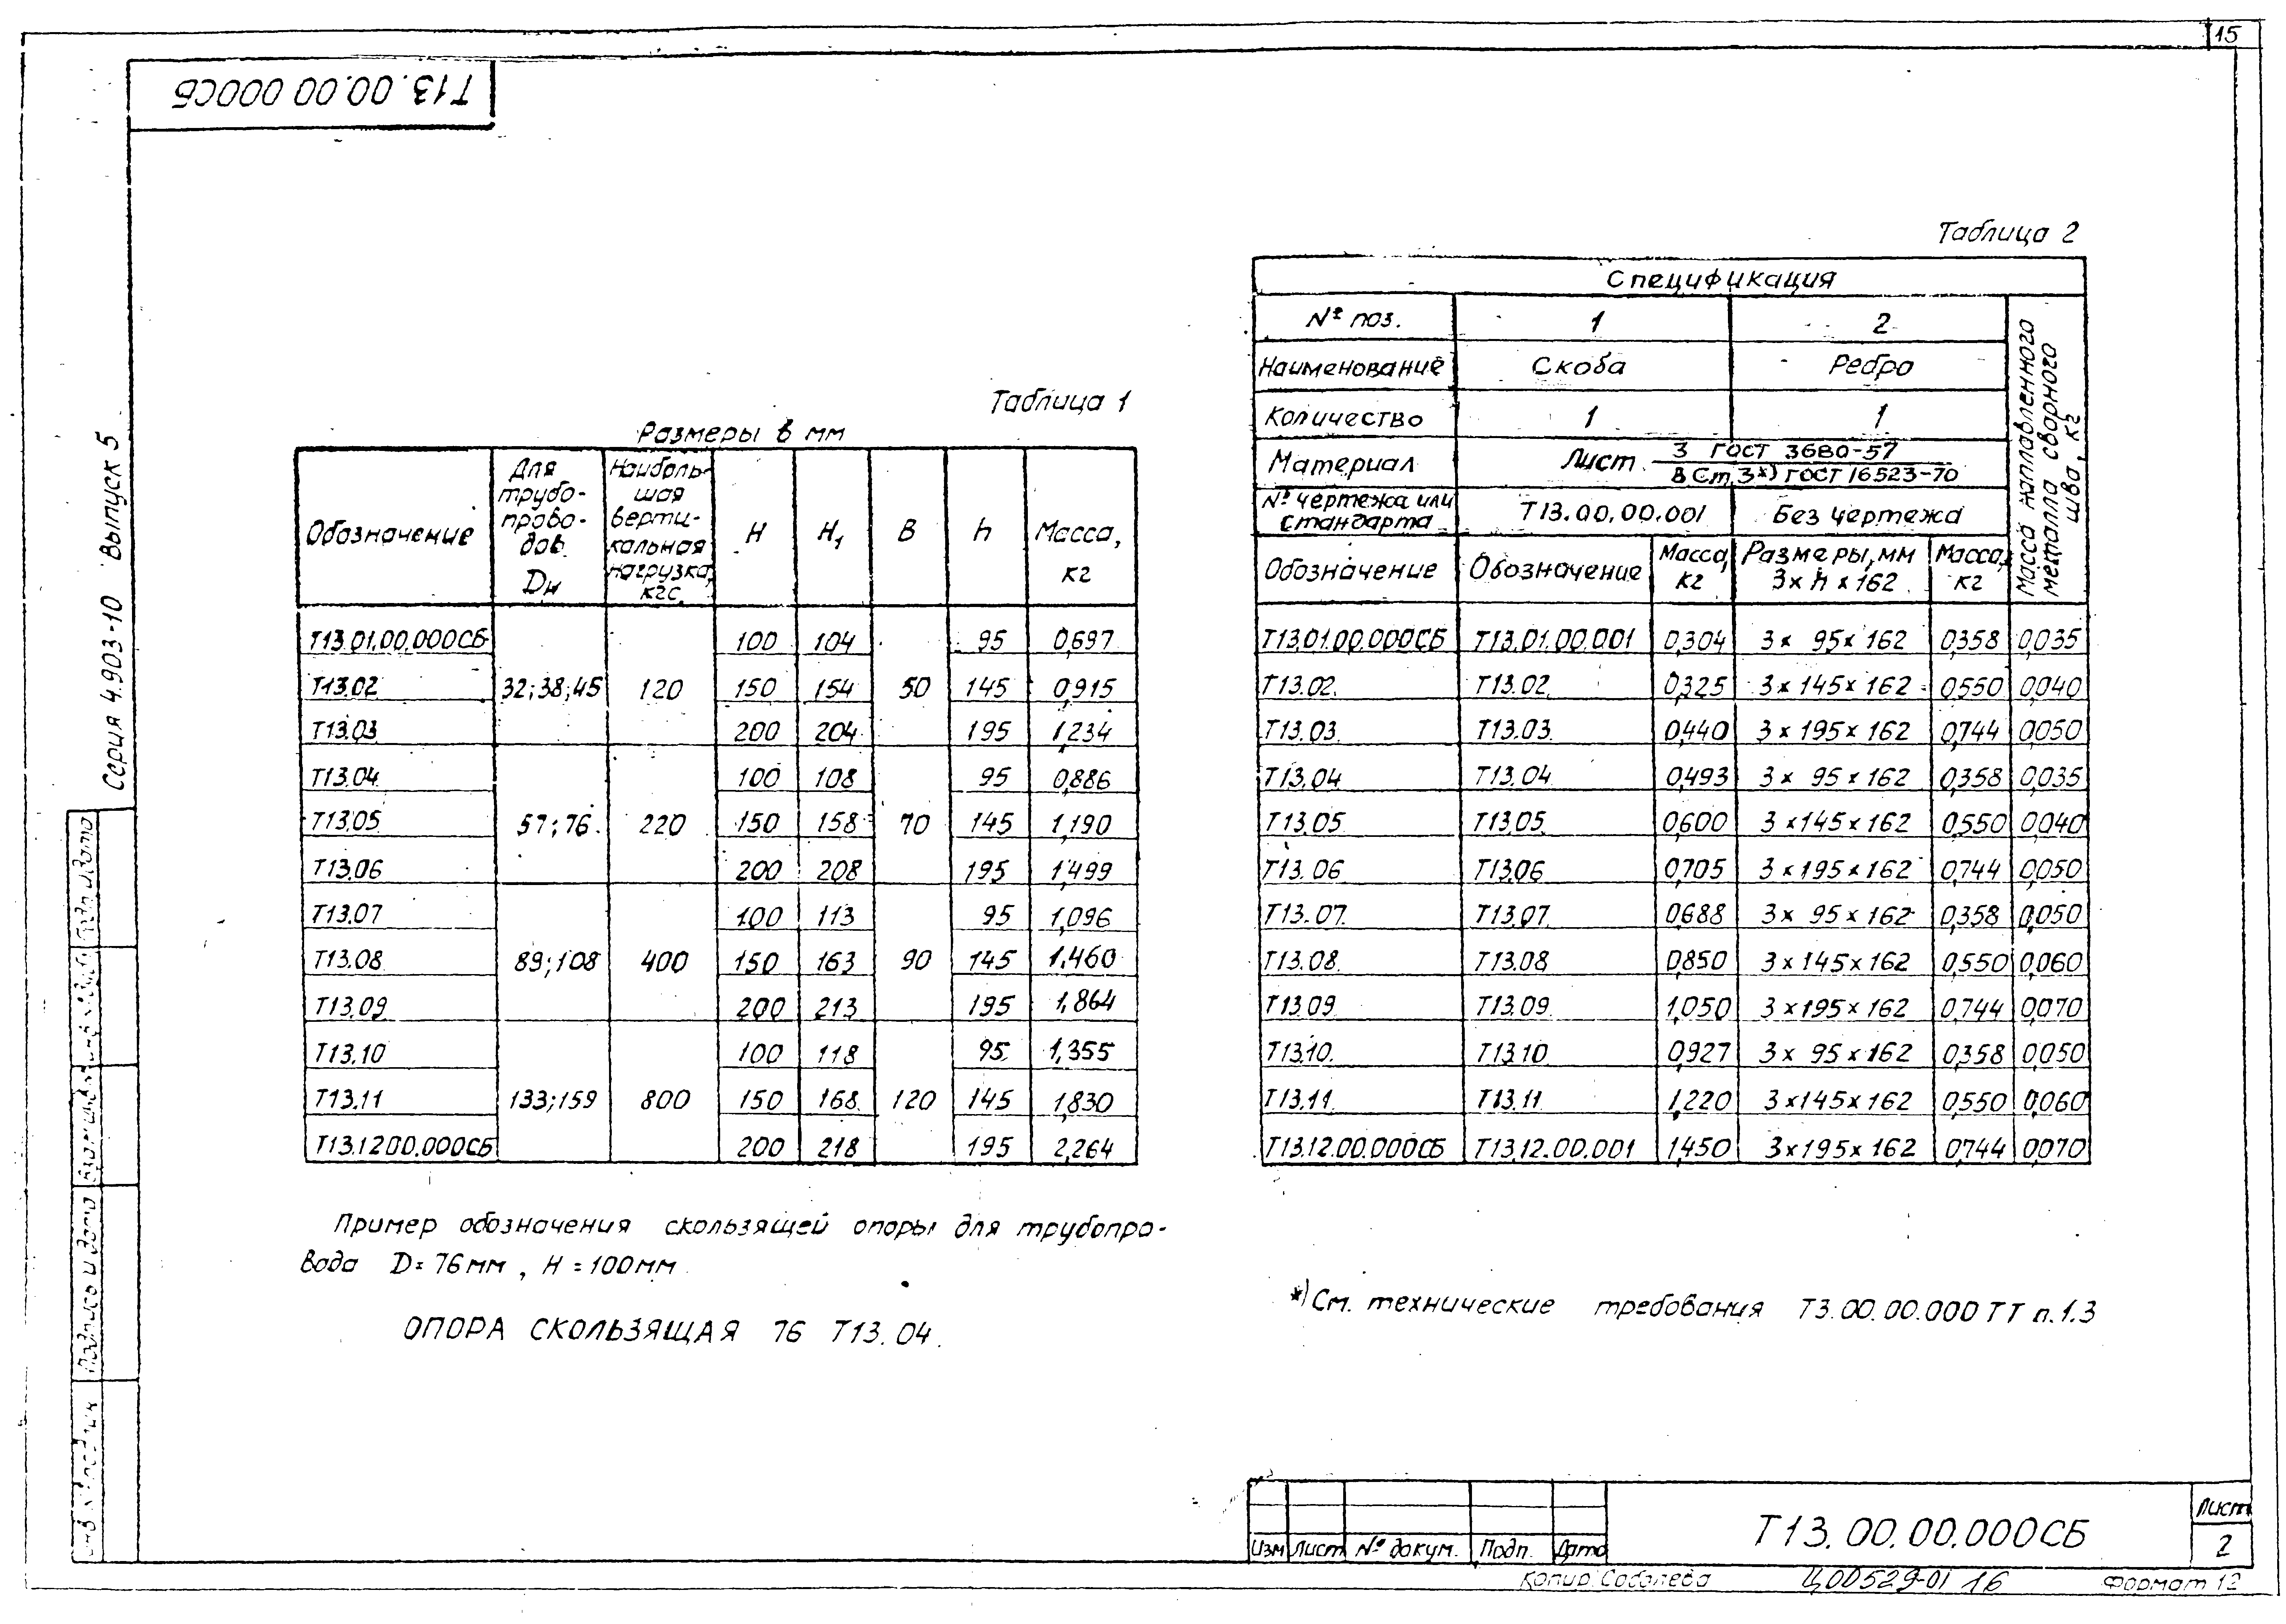 15
Т13.00.00 000СБ
Серия 4.903-10 Выпуск 5
Таблица 1
Размеры в мм
Обозначение | Для трубо-проводов Dн | Наиболь-шая верти-кальная нагрузка, кгс | H | H1 | B | h | Масса, кг
Т13.01.00.000СБ | 32;38;45 | 120 | 100 | 104 | 50 | 95 | 0,697
Т13.02 | 150 | 154 | 145 | 0,915
Т13.03 | 200 | 204 | 195 | 1,234
Т13.04 | 57;76 | 220 | 100 | 108 | 70 | 95 | 0,886
Т13.05 | 150 | 158 | 145 | 1,190
Т13.06 | 200 | 208 | 195 | 1,499
Т13.07 | 89;108 | 400 | 100 | 113 | 90 | 95 | 1,096
Т13.08 | 150 | 163 | 145 | 1,460
Т13.09 | 200 | 213 | 195 | 1,864
Т13.10 | 133;159 | 800 | 100 | 118 | 120 | 95 | 1,355
Т13.11 | 150 | 168 | 145 | 1,830
Т13.12.00.000СБ | 200 | 218 | 195 | 2,264
Пример обозначения скользящей опоры для трубопро-
вода D=76мм, H=100мм
ОПОРА СКОЛЬЗЯЩАЯ 76 Т13.04.
Таблица 2
Спецификация
№ поз. | 1 | 2 | Масса наплавленного металла сварного шва, кг
Наименование | Скоба | Ребро
Количество | 1 | 1
Материал | Лист 3 ГОСТ 3680-57 / ВСт.3*) ГОСТ 16523-70
№ чертежа или стандарта | Т13.00.00.001 | Без чертежа
Обозначение | Обозначение | Масса, кг | Размеры, мм 3×h×162 | Масса, кг
Т13.01.00.000СБ | Т13.01.00.001 | 0,304 | 3× 95×162 | 0,358 | 0,035
Т13.02. | Т13.02. | 0,325 | 3×145×162 | 0,550 | 0,040
Т13.03. | Т13.03. | 0,440 | 3×195×162 | 0,744 | 0,050
Т13.04 | Т13.04 | 0,493 | 3× 95×162 | 0,358 | 0,035
Т13.05 | Т13.05 | 0,600 | 3×145×162 | 0,550 | 0,040
Т13.06 | Т13.06 | 0,705 | 3×195×162 | 0,744 | 0,050
Т13.07. | Т13.07. | 0,688 | 3× 95×162 | 0,358 | 0,050
Т13.08. | Т13.08 | 0,850 | 3×145×162 | 0,550 | 0,060
Т13.09 | Т13.09 | 1,050 | 3×195×162 | 0,744 | 0,070
Т13.10. | Т13.10. | 0,927 | 3× 95×162 | 0,358 | 0,050
Т13.11. | Т13.11. | 1,220 | 3×145×162 | 0,550 | 0,060
Т13.12.00.000СБ | Т13.12.00.001 | 1,450 | 3×195×162 | 0,744 | 0,070
*) См. технические требования Т3.00.00.000 ТТ п.1.3
Подп. и дата
Подпись и дата
Изм | Лист | № докум. | Подп. | Дата
Т13.00.00.000СБ
Лист
2
Копир. Соболева
Ц00529-01 16
Формат 12